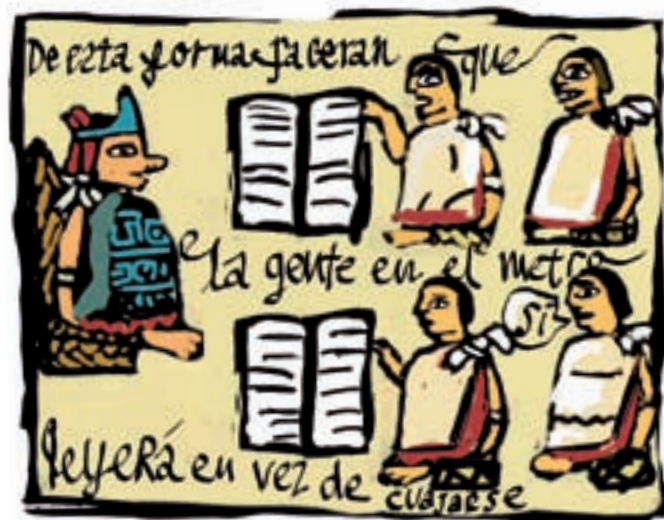 De esta forma faceran que
la gente en el metro
Sí
leyerá en vez de
cuajarse